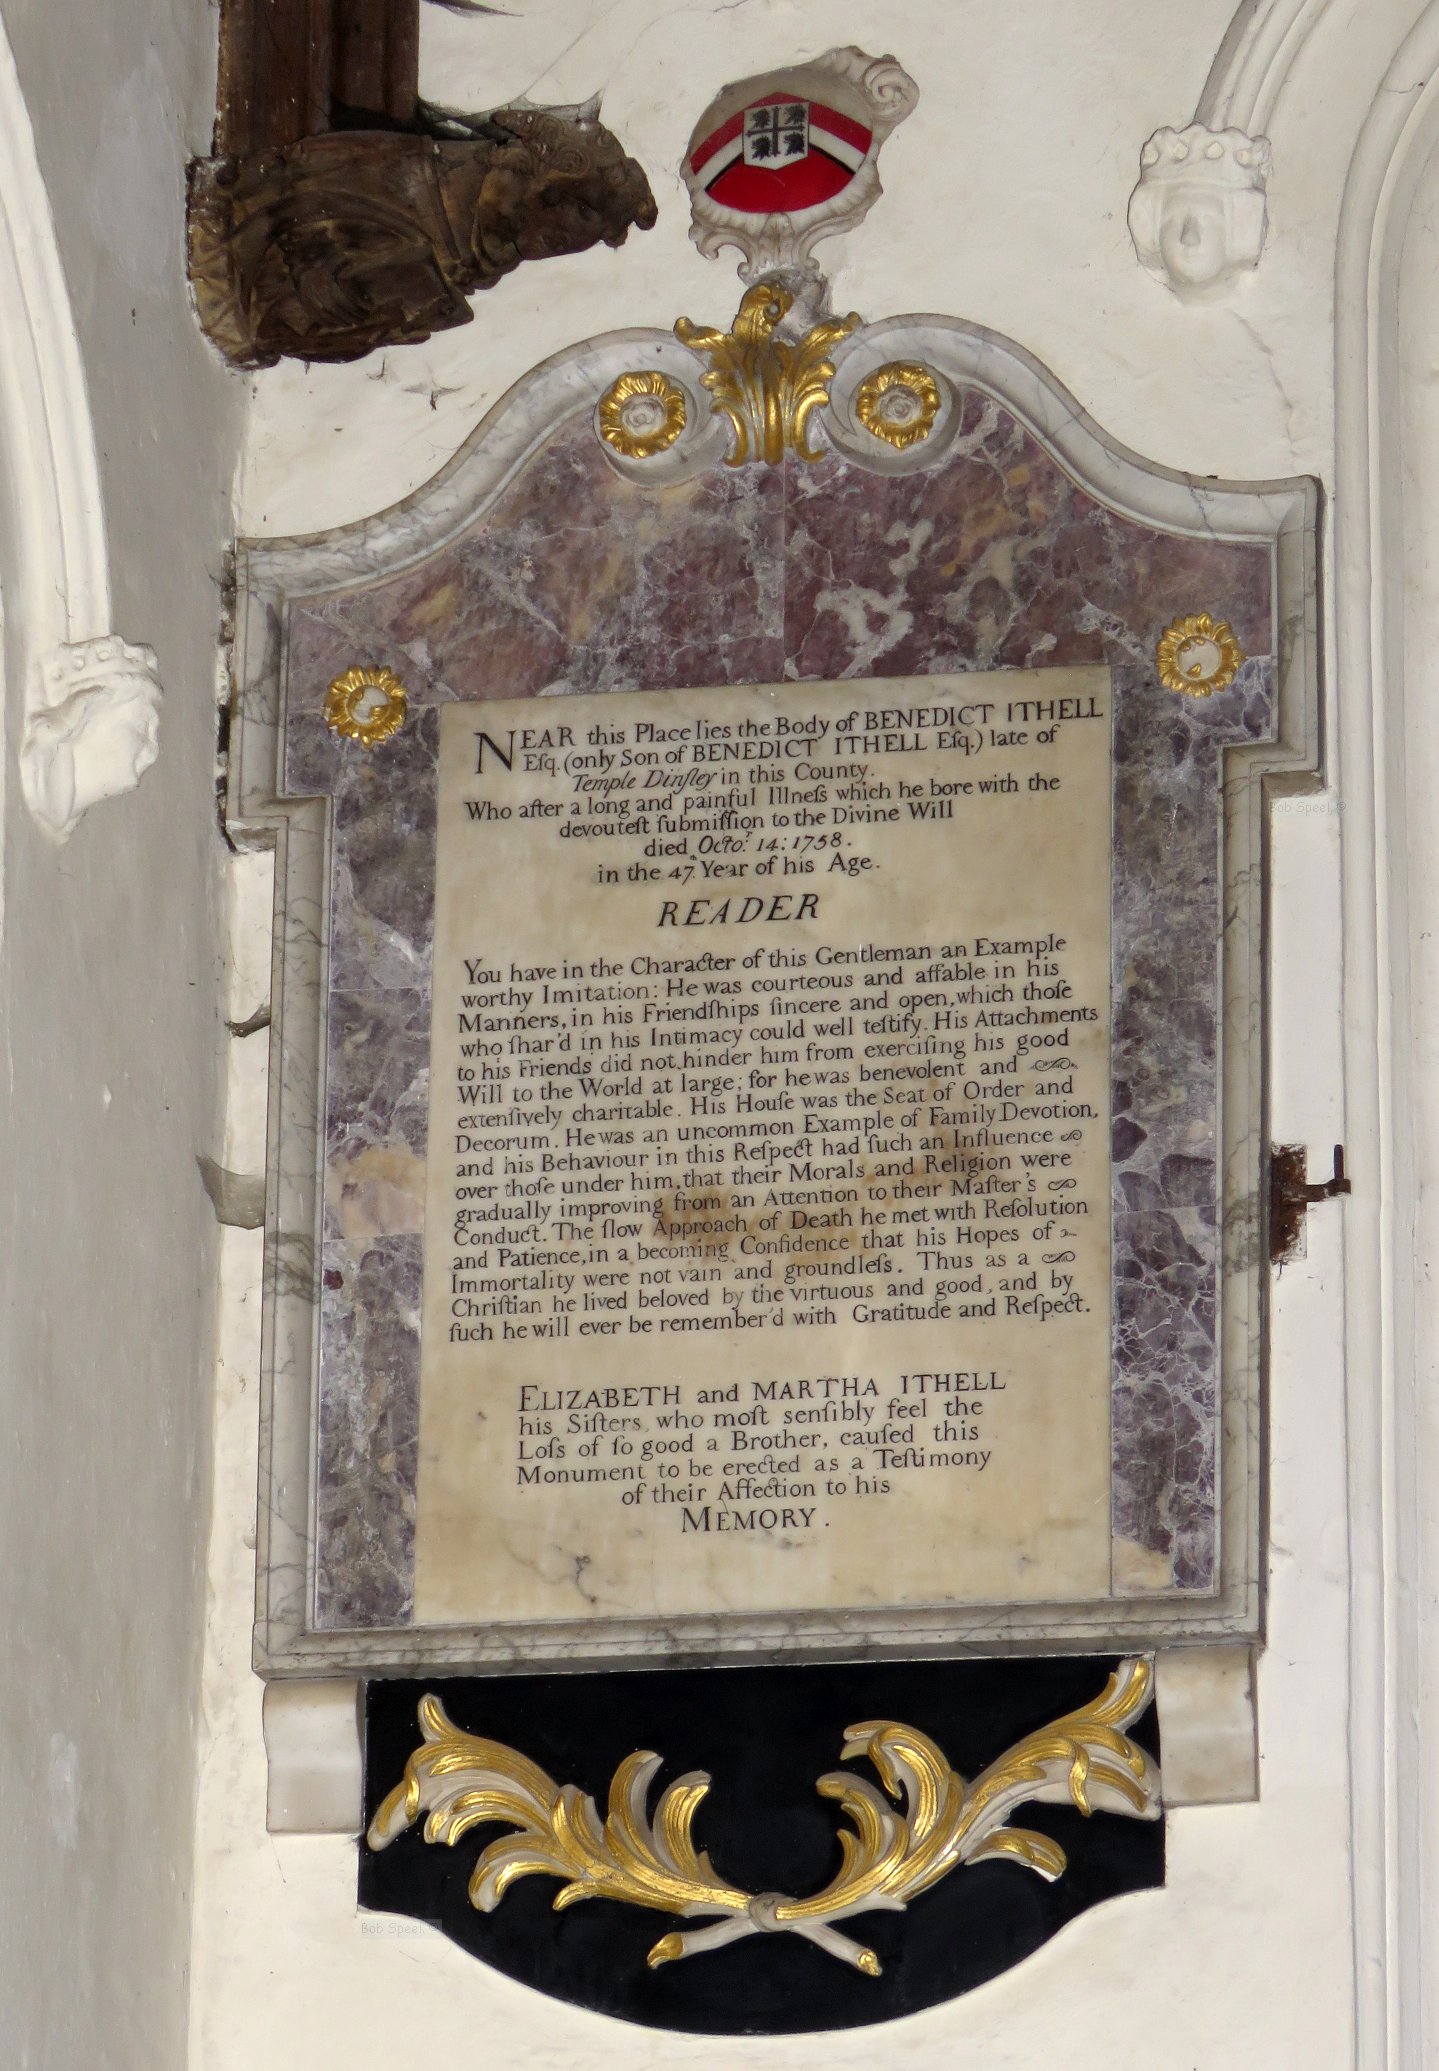 NEAR this Place lies the Body of BENEDICT ITHELL
Eſq. (only Son of BENEDICT ITHELL Eſq.) late of
Temple Dinſley in this County.
Who after a long and painful Illneſs which he bore with the
devouteſt ſubmiſſion to the Divine Will
died Octo.r 14: 1758.
in the 47. Year of his Age.
READER
You have in the Character of this Gentleman an Example
worthy Imitation: He was courteous and affable in his
Manners, in his Friendſhips ſincere and open, which thoſe
who ſhar'd in his Intimacy could well teſtify. His Attachments
to his Friends did not hinder him from exerciſing his good
Will to the World at large; for he was benevolent and
extenſively charitable. His Houſe was the Seat of Order and
Decorum. He was an uncommon Example of Family Devotion,
and his Behaviour in this Reſpect had ſuch an Influence
over thoſe under him, that their Morals and Religion were
gradually improving from an Attention to their Maſter's
Conduct. The ſlow Approach of Death he met with Reſolution
and Patience, in a becoming Confidence that his Hopes of
Immortality were not vain and groundleſs. Thus as a
Chriſtian he lived beloved by the virtuous and good, and by
ſuch he will ever be remember'd with Gratitude and Reſpect.
ELIZABETH and MARTHA ITHELL
his Siſters, who moſt senſibly feel the
Loſs of ſo good a Brother, cauſed this
Monument to be erected as a Teſtimony
of their Affection to his
MEMORY.
Bob Speel ©
Bob Speel ©